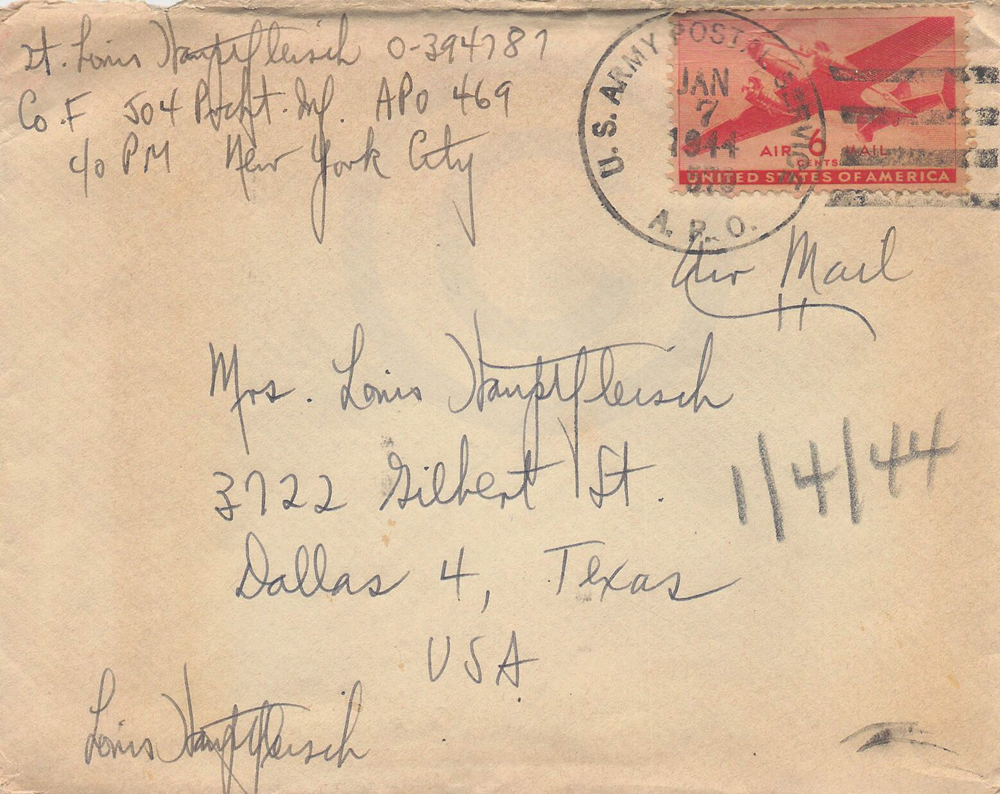 Lt. Louis Hauptfleisch O-394787
Co. F 504 Prcht. Inf. APO 469
c/o PM New York City
U. S. ARMY POSTAL SERVICE
JAN
7
1944
A. P. O.
AIR 6 MAIL
CENTS
UNITED STATES OF AMERICA
Air Mail
Mrs. Louis Hauptfleisch
3722 Gilbert St.
Dallas 4, Texas
USA
1/4/44
Louis Hauptfleisch